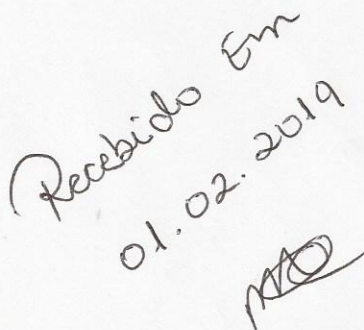 Recebido Em
01.02.2019